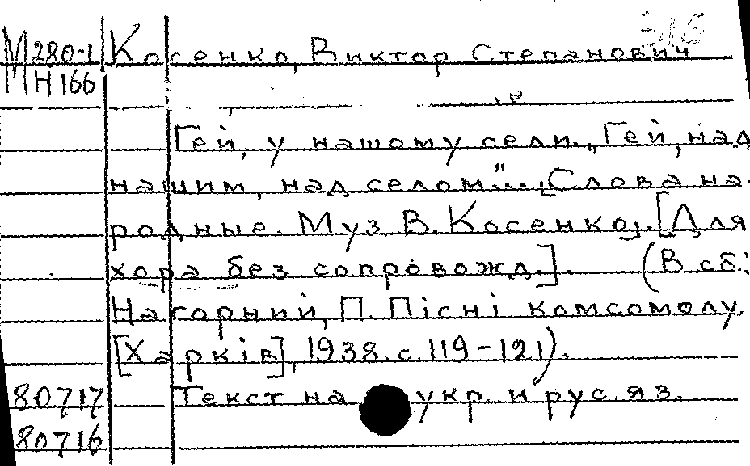 М280-1 Косенко, Виктор Степанович
Н166
Гей, у нашому сели... „Гей, над
нашим, над селом"... [Слова на-
родные. Муз В. Косенко]. [Для
хора без сопровожд.]. (В сб.:
Нагорний, П. Пісні комсомолу.
[Харків], 1938. с 119-121).
80717 Текст на укр. и рус. яз.
80716